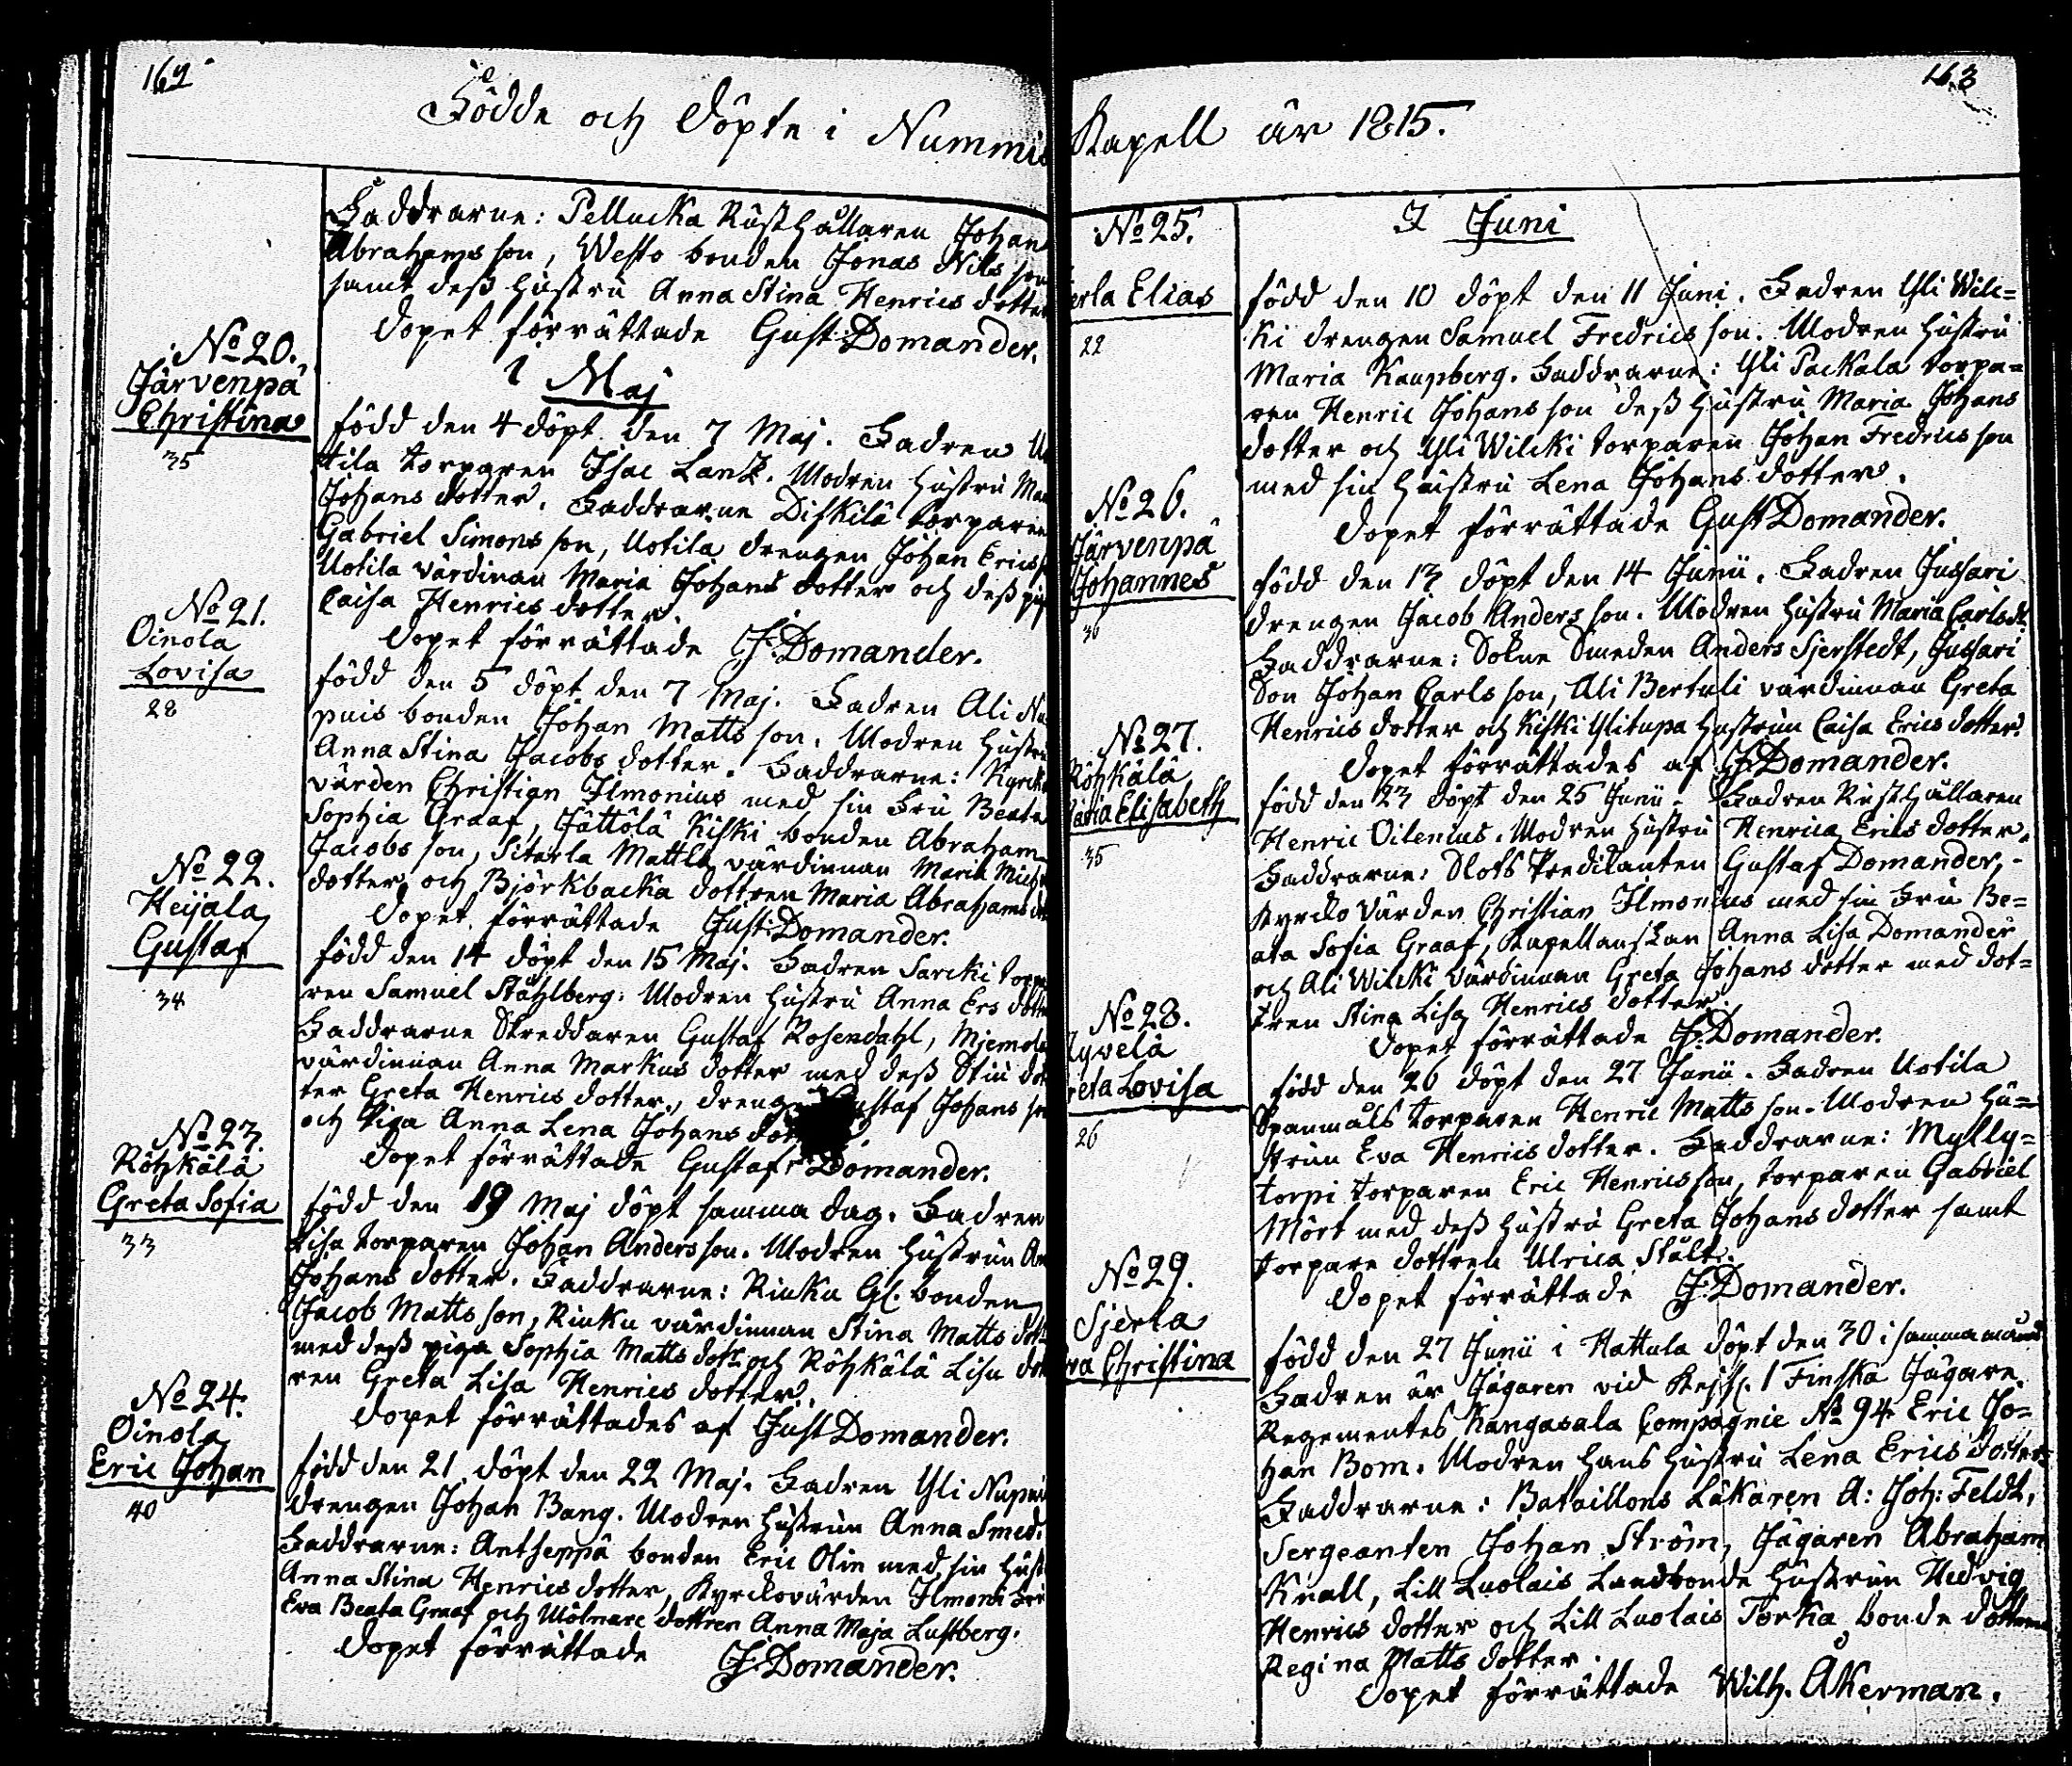 162
Födde och Döpte i Nummis
Faddrarne: Pellucka Rusthållaren Johan
Abrahams son, Westo bonden Jonas Nils son
samt deß hustru Anna Stina Henrics dotter
Dopet förrättade Gust: Domander.
I Maj
No 20.
Järvenpä
Christina
35
född den 4 döpt den 7 Maj. Fadren Uo
tila torparen Isac Lank. Modren hustru Ma
Johans dotter. Faddrarne Diskilä torparen
Gabriel Simons son, Uotila drengen Johan Erics
Uotila värdinan Maria Johans dotter och deß pig
Caisa Henrics dotter.
Dopet förrättade G: Domander.
No 21.
Oinola
Lovisa
28
född den 5 döpt den 7 Maj. Fadren Ali Nu
puis bonden Johan Matts son. Modren hustru
Anna Stina Jacobs dotter. Faddrarne: Kyrcko
värden Christian Ilmonius med sin Fru Beata
Sophia Graaf, Jättölä Kiski bonden Abraham
Jacobs son, Siterla Mattla värdinnan Maria Mich
dotter och Björkbacka dottren Maria Abrahams dot
Dopet förrättade Gust: Domander.
No 22.
Heijala
Gustaf
34
född den 14 döpt den 15 Maj. Fadren Sarcki torpa
ren Samuel Ståhlberg. Modren hustru Anna Ers dotter
Faddrarne Skreddaren Gustaf Rosendahl, Mjemola
värdinnan Anna Markus dotter med deß Stiu dot
ter Greta Henrics dotter, dreng Gustaf Johans son
och Piga Anna Lena Johans dot
Dopet förrättade Gustaf Domander.
No 23.
Röhkälä
Greta Sofia
33
född den 19 Maj döpt samma dag. Fadren
Lisu torparen Johan Anders son. Modren hustrun An
Johans dotter. Faddrarne: Riuku Gl. bonden
Jacob Matts son, Riuku värdinnan Stina Matts dott
med deß piga Sophia Matts dotr och Röhkälä Lisu dott
ren Greta Lisa Henrics dotter.
Dopet förrättades af Gust Domander.
No 24.
Oinola
Eric Johan
40
född den 21 döpt den 22 Maj. Fadren Yli Nupui
drengen Johan Bang. Modren hustrun Anna Smed.
Faddrarne: Antseppä bonden Eric Olin med sin hust
Anna Stina Henrics dotter, Kyrckovärden Ilmoni Fru
Eva Beata Graaf och Mölnare dottren Anna Maja Lustberg.
Dopet förrättade G: Domander.
163
Kapell år 1815.
I Juni
No 25.
erla Elias
22
född den 10 döpt den 11 Juni. Fadren Yli Wilc=
ki drengen Samuel Fredrics son. Modren hustru
Maria Kaupberg. Faddrarne: Yli Packala torpa=
ren Henric Johans son deß hustru Maria Johans
dotter och Yli Wilcki torparen Johan Fredrics son
med sin hustru Lena Johans dotter.
Dopet förrättade Gust Domander.
No 26.
Järvenpä
Johannes
36
född den 13 döpt den 14 Junii. Fadren Jussari
drengen Jacob Anders son. Modren hustru Maria Carlsdr.
Faddrarne: Sokne Smeden Anders Sjerstedt, Jussari
Son Johan Carls son, Ali Bertuli värdinnan Greta
Henrics dotter och Kiski Ylitupa hustrun Caisa Erics dotter.
Dopet förrättades af G: Domander.
No 27.
Röhkälä
Maria Elisabeth
35
född den 23 döpt den 25 Junii. Fadren Rusthållaren
Henric Oilenius. Modren hustru Henrica Erics dotter.
Faddrarne: Slots Predikanten Gustaf Domander,
Kyrcko Värden Christian Ilmonius med sin Fru Be=
ata Sofia Graaf, Kapellanskan Anna Lisa Domander
och Ali Wilcki värdinnan Greta Johans dotter med dot=
tren Stina Lisa Henrics dotter.
Dopet förrättade G: Domander.
No 28.
yvelä
reta Lovisa
26
född den 26 döpt den 27 Junii. Fadren Uotila
Spanmåls torparen Henric Matts son. Modren hu=
strun Eva Henrics dotter. Faddrarne: Mylly=
torpi torparen Eric Henrics son, torparen Gabriel
Mört med deß hustru Greta Johans dotter samt
torpare dottren Ulrica Stålt.
Dopet förrättade G: Domander.
No 29.
Sjerla
va Christina
född den 27 Junii i Hattula döpt den 30 i samma månad
Fadren är Jägaren vid Kejs. 1 Finska Jägare
Regementes Kangasala Compagnie No 94 Eric Jo=
han Bom. Modren hans hustru Lena Erics dotter
Faddrarne: Bataillons Läkaren A: Joh: Feldt,
Sergeanten Johan Ström, Jägaren Abraham
Knall, Lill Luolais Landbonde hustrun Hedvig
Henrics dotter och Lill Luolais Torka bonde dottren
Regina Matts dotter.
Dopet förrättade Wilh. Åkerman.